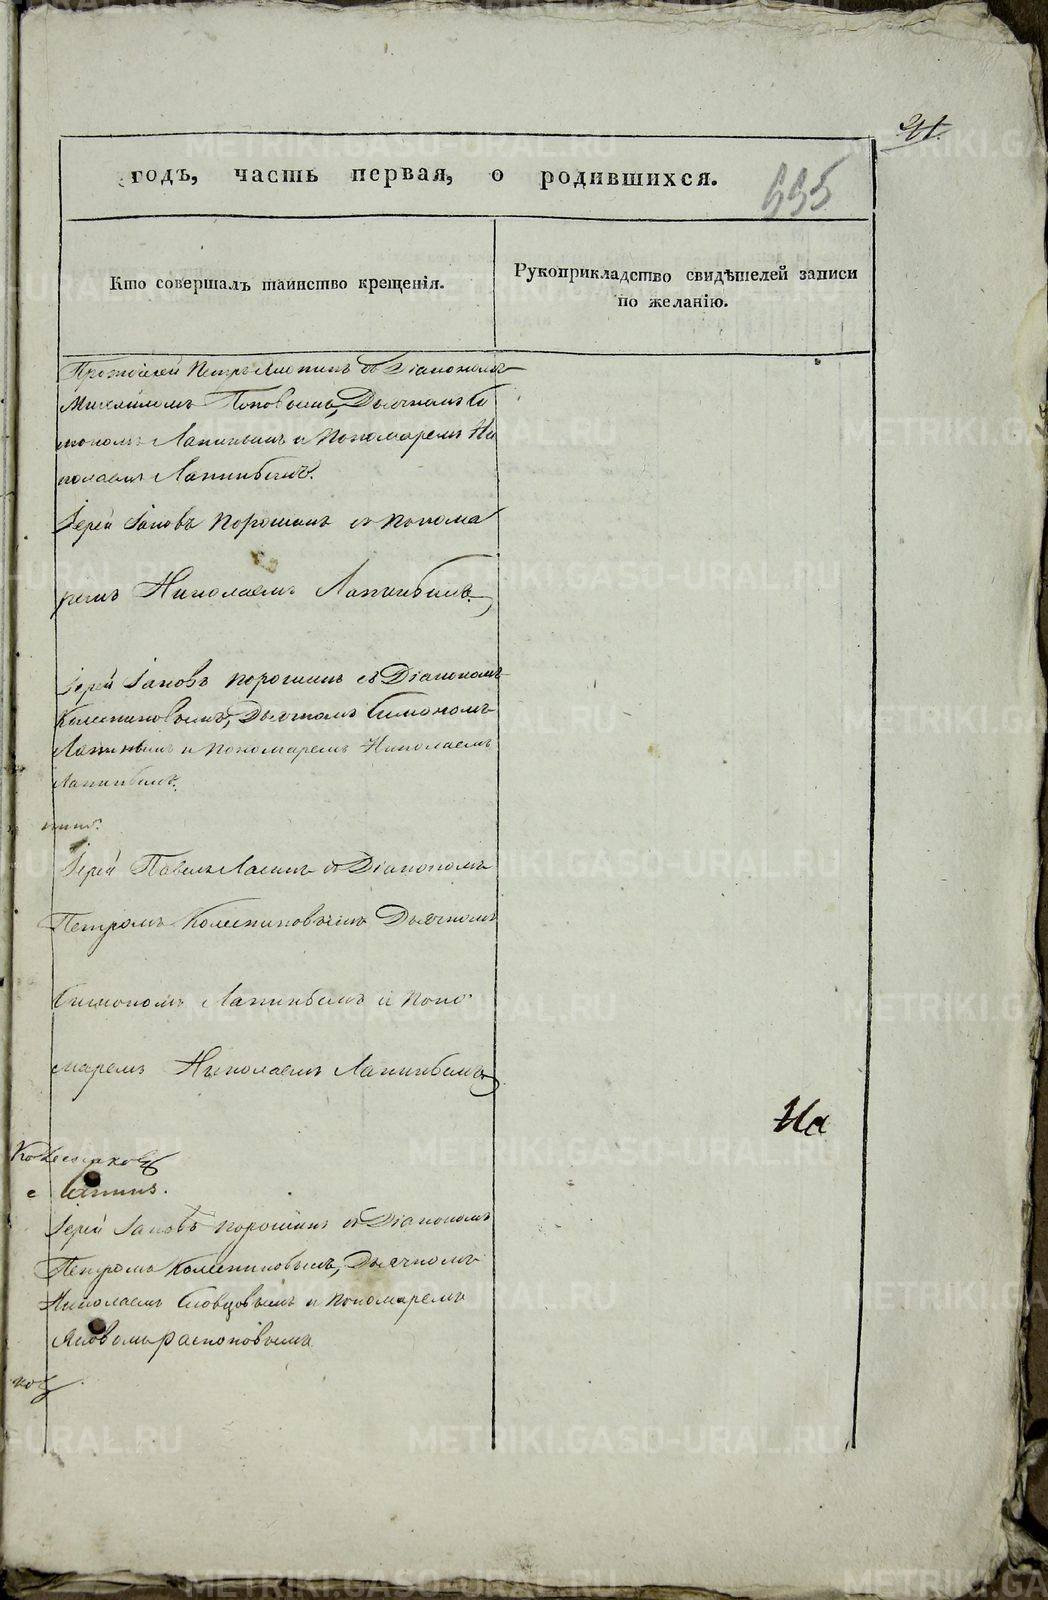 годъ, часть первая, о родившихся.
635
Кто совершалъ таинство крещенія.
Рукоприкладство свидѣтелей записи
по желанію.
Протоіерей Петръ съ Діакономъ
Михаиломъ Поповымъ, Дьячкомъ Си
мономъ Лапинымъ и Пономаремъ Ни
колаемъ Лапинымъ.
Іерей Іаковъ Порошинъ съ Понома
ремъ Николаемъ Лапинымъ.
Іерей Іаковъ Порошинъ съ Діакономъ
Колесниковымъ, Дьячкомъ Симономъ
Лапинымъ и Пономаремъ Николаемъ
Лапинымъ.
Іерей Павелъ съ Діакономъ
Петромъ Колесниковымъ Дьячкомъ
Симономъ Лапинымъ и Поно
маремъ Николаемъ Лапинымъ
На
Іерей Іаковъ Порошинъ съ Діакономъ
Петромъ Колесниковымъ, Дьячкомъ
Николаемъ Словцовымъ и Пономаремъ
Яковомъ Распоповымъ
METRIKI.GASO-URAL.RU